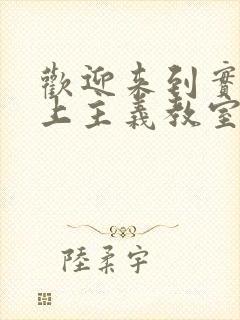 歡迎来到實
上主義教室
陸柔宇